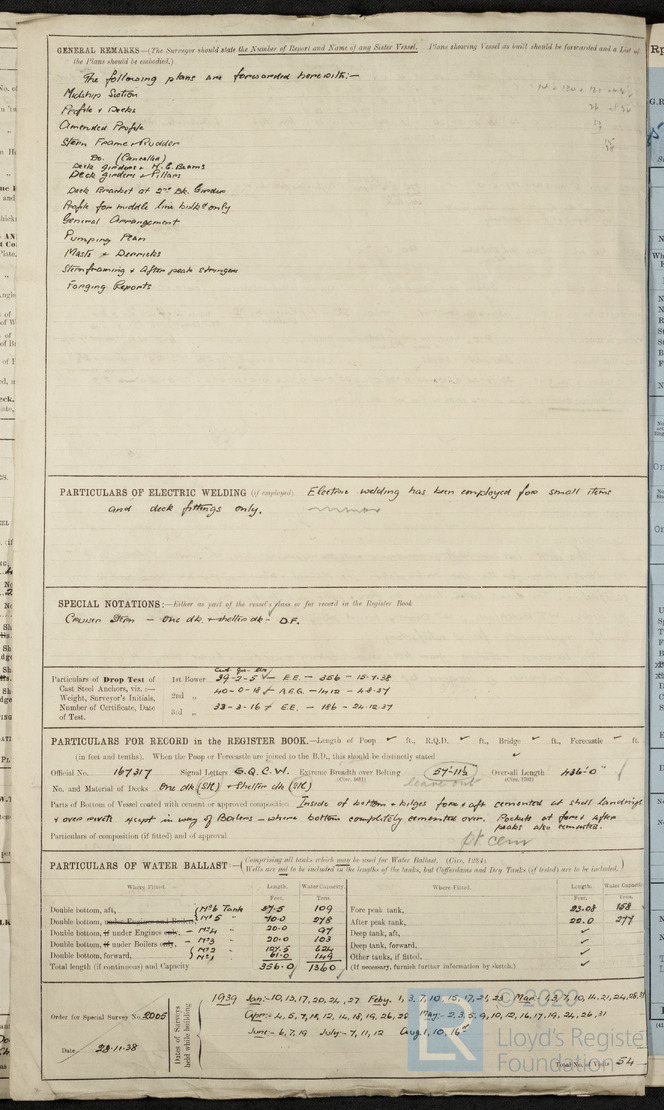 GENERAL REMARKS—(The Surveyor should state the Number of Report and Name of any Sister Vessel. Plans showing Vessel as built should be forwarded and a List of
the Plans should be embodied.)
The following plans are forwarded herewith:-
Midship Section
Profile & Decks
Amended Profile
Stern Frame & Rudder
Do. (Cancelled)
Deck girders & H.E. Beams
Deck girders & Pillars
Deck Bracket at 2nd Dk. Girder
Profile for middle line bulkd only
General Arrangement
Pumping Plan
Masts & Derricks
Sternframing & After peak stringers
Forging Reports
PARTICULARS OF ELECTRIC WELDING (if employed) Electric welding has been employed for small items
and deck fittings only.
SPECIAL NOTATIONS:—Either as part of the vessel's class or for record in the Register Book
Cruiser Stern - One dk. & shelter dk - D.F.
Particulars of Drop Test of
Cast Steel Anchors, viz.:—
Weight, Surveyor's Initials,
Number of Certificate, Date
of Test.
1st Bower 39-2-5 - E.E. - 356 - 15-7-38
2nd „ 40-0-18 - A.E.G. - 1412 - 4-8-37
3rd „ 33-3-16 - E.E. - 186 - 24-12-37
PARTICULARS FOR RECORD in the REGISTER BOOK.—Length of Poop ft., R.Q.D. ft., Bridge ft., Forecastle ft.
(in feet and tenths). When the Poop or Forecastle are joined to the B.D., this should be distinctly stated
Official No. 167317 Signal Letters G.Q.C.W. Extreme Breadth over Belting 57'-11½" Over-all Length 436'-0"
(Circ. 1703)
No. and Material of Decks One dk (Stl) & Shelter dk (Stl)
leave out
Parts of Bottom of Vessel coated with cement or approved composition Inside of bottom & bilges fore & aft cemented at shell landings
& over rivets except in way of Boilers - where bottom completely cemented over. Pockets at fore & after
peaks also cemented.
Particulars of composition (if fitted) and of approval
pt cem
PARTICULARS OF WATER BALLAST:—(Comprising all tanks which may be used for Water Ballast. (Circ. 1284)
Wells are not to be included in the lengths of the tanks, but Cofferdams and Dry Tanks (if tested) are to be included.)
Where Fitted. Length. Water Capacity. Where Fitted. Length. Water Capacity
Feet. Tons. Feet. Tons.
Double bottom, aft, No 6 Tank 27.5 109 Fore peak tank, 23.08 158
Double bottom, under Engines and Boilers No 5 „ 70.0 278 After peak tank, 22.0 277
Double bottom, if under Engines only, - No 4 „ 20.0 97 Deep tank, aft,
Double bottom, if under Boilers only, - No 3 „ 20.0 103 Deep tank, forward,
Double bottom, forward, No 2 „ 157.5 624 Other tanks, if fitted,
No 1 „ 61.0 149
Total length (if continuous) and Capacity 356.0 1360 (If necessary, furnish further information by sketch.)
Order for Special Survey No. 2005
Date 28-11-38
Dates of Surveys
held while building
1939 Jan:- 10, 13, 17, 20, 24, 27 Feby. 1, 3, 7, 10, 15, 17, 21, 23 Mar:- 1, 3, 7, 10, 14, 21, 24, 28, 31
Apr:- 4, 5, 7, 10, 12, 14, 18, 19, 26, 28 May:- 2, 3, 5, 9, 10, 12, 16, 17, 19, 24, 26, 31
June:- 6, 7, 19 July:- 7, 11, 12 Aug. 1, 10, 16th
Total No. of Visits 54
© 2020
Lloyd's Register
Foundation